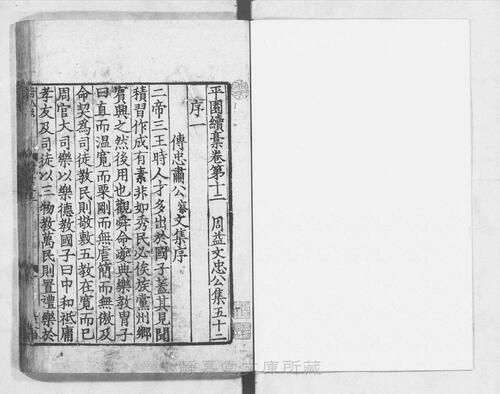 平園續藁卷第十二 周益文忠公集五十二
序一
傅忠肅公察文集序
二帝三王時人才多出於國子蓋其見聞
積習作成有素非如秀民必俟族黨州鄉
賓興之然後用也觀舜命夔典樂教胄子
曰直而温寬而栗剛而無虐簡而無傲及
命契爲司徒教民則敬敷五教在寬而已
周官大司樂以樂德教國子曰中和祗庸
孝友及司徒以三物教萬民則置禮樂於
靜嘉堂文庫所藏